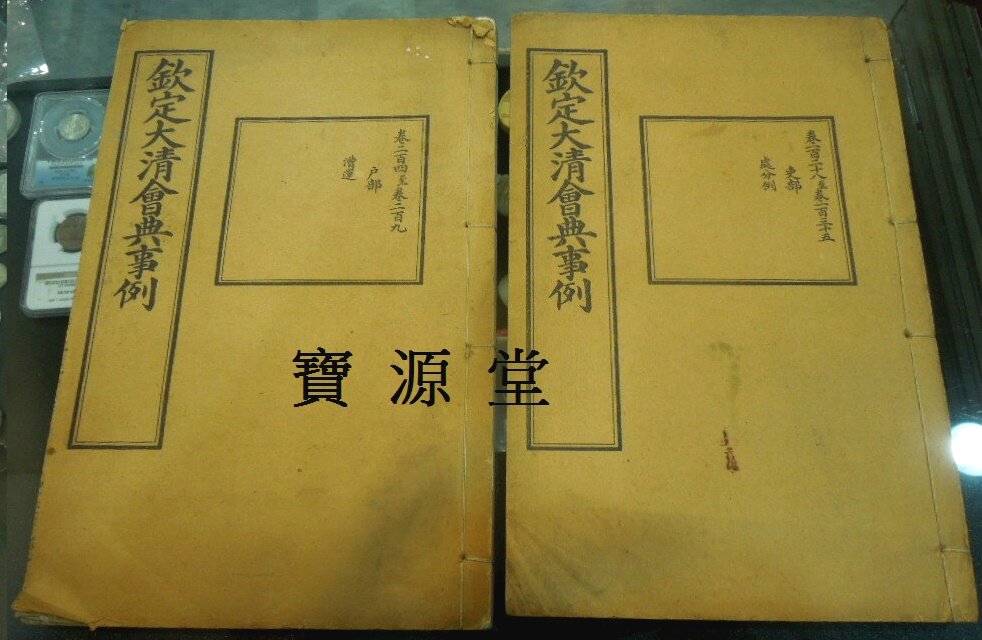 欽定大清會典事例
卷二百四至卷二百九
戶部
漕運
欽定大清會典事例
卷一百二十八至卷一百三十五
吏部
處分例
寶源堂